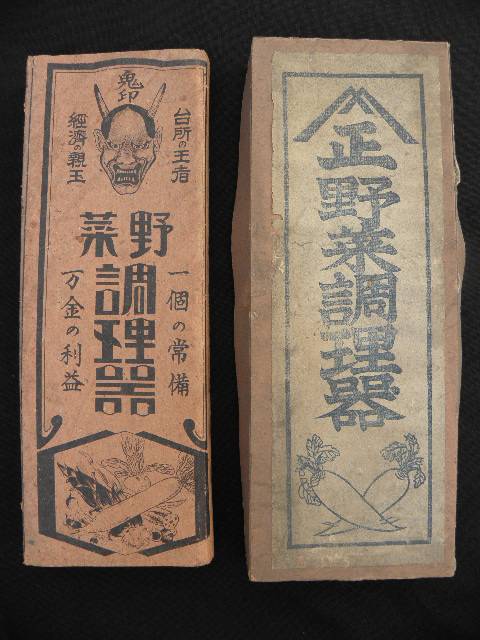 鬼印
台所の王者
經濟の親玉
野菜
調理器
一個の常備
万金の利益
正野菜調理器